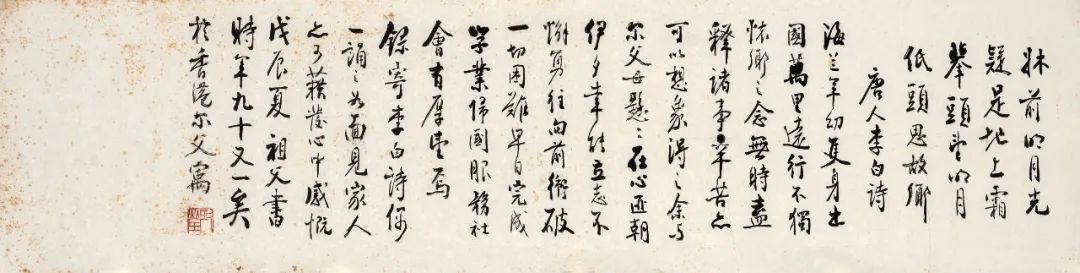 牀前明月光
疑是地上霜
舉頭望明月
低頭思故鄉
唐人李白詩
海兒年幼隻身出
國萬里遠行不獨
懷鄉之念無時盡
釋諸事辛苦亦
可以想象得之余與
爾父母懸懸在心匪朝
伊夕幸能立志不
懈勇往向前衝破
一切困難早日完成
學業歸國服務社
會有厚望焉
錄寄李白詩你
一誦之如面見家人
亦可藉發心中感慨
戊辰夏 祖父書
時年九十又一矣
於香港爾父寓